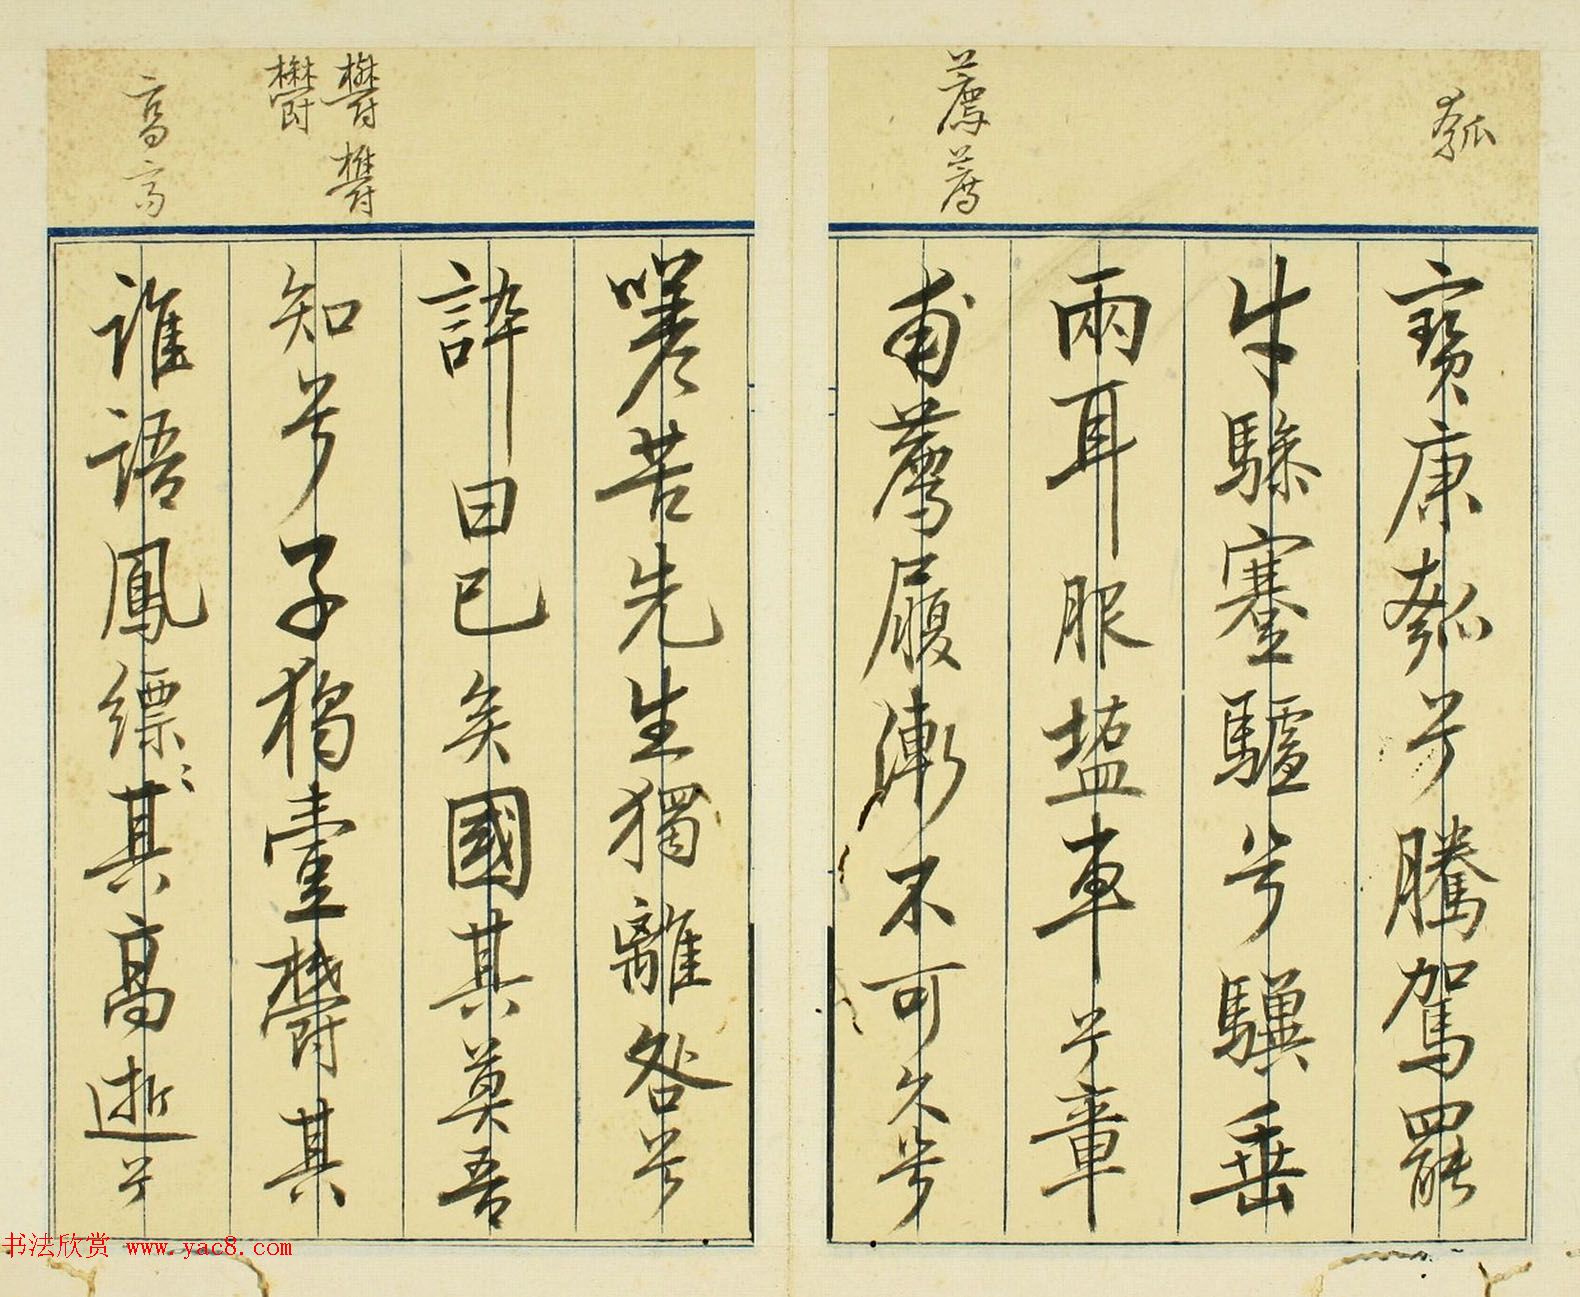 瓠
薦薦
寶康瓠兮騰駕罷
牛驂蹇驢兮驥垂
兩耳服鹽車兮章
甫薦履漸不可久兮
嗟苦先生獨離咎兮
誶曰已矣國其莫吾
知兮子獨壹鬱其
誰語鳳縹〻其高逝兮
鬱鬱
鬱
高高
书法欣赏 www.yac8.com